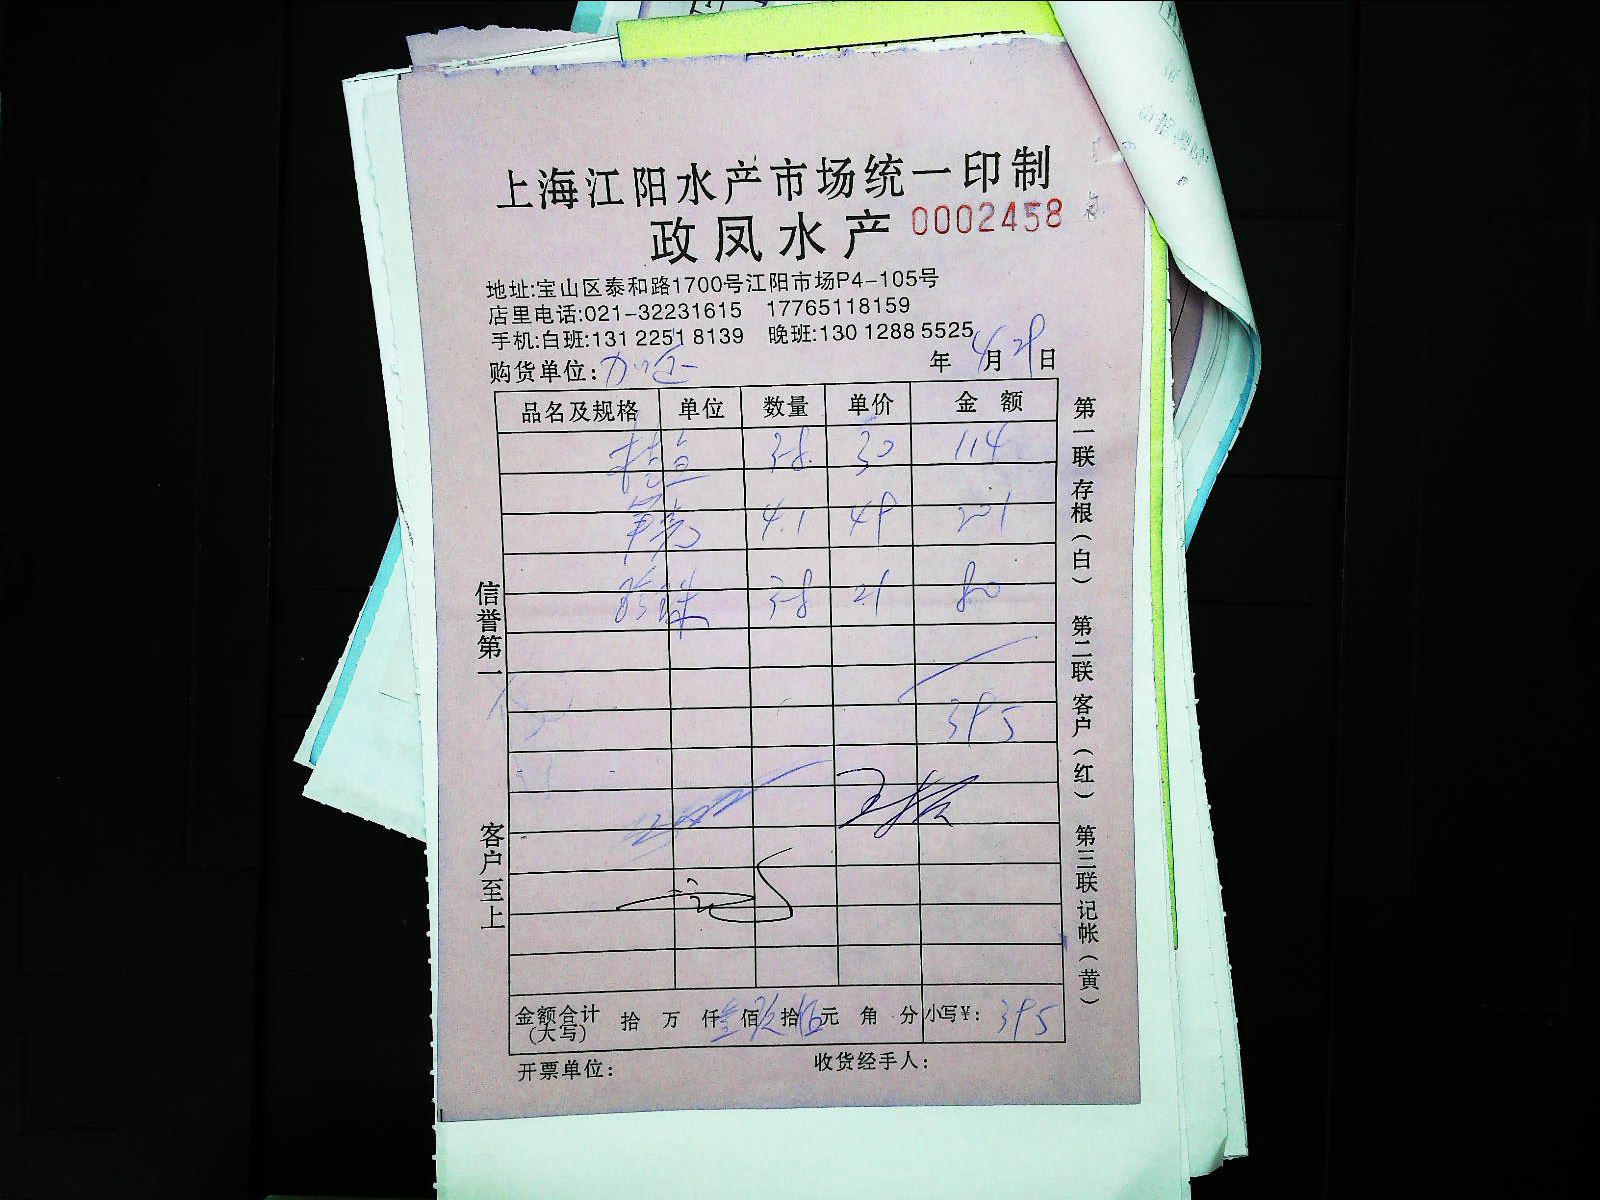 上海江阳水产市场统一印制
政凤水产 0002458
地址:宝山区泰和路1700号江阳市场P4-105号
店里电话:021-32231615 17765118159
手机:白班:131 2251 8139 晚班:130 1288 5525
购货单位: 年 4月29日
品名及规格 单位 数量 单价 金额
桂鱼 3.8 30 114
4.1 49 201
珍珠 3.8 21 80
395
金额合计(大写) 拾 万 仟 叁佰 玖拾 伍元 角 分 小写¥: 395
开票单位: 收货经手人:
信誉第一
客户至上
第一联 存根(白) 第二联 客户(红) 第三联 记帐(黄)